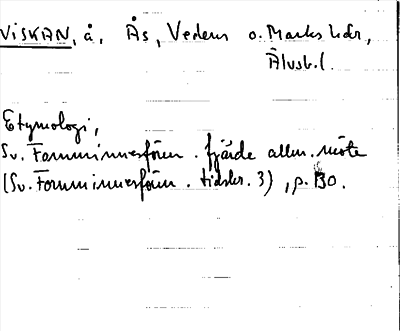 VISKAN, å, Ås, Vedens o. Marks hdr,
Älvsb.l.
Etymologi,
Sv. Fornminnesfören. fjärde allm. möte
(Sv. Fornminnesfören. tidskr. 3), p. 130.